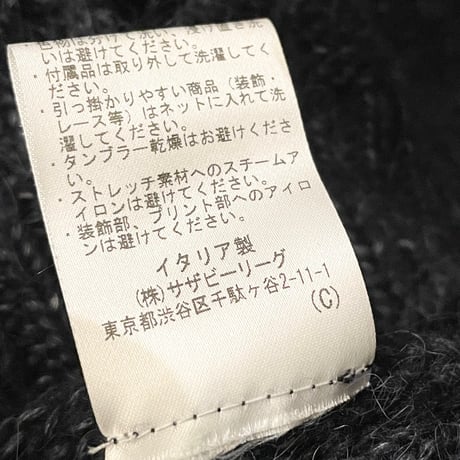 色物は分けて洗い、浸け置き洗
いは避けてください。
・付属品は取り外して洗濯してく
ださい。
・引っ掛かりやすい商品（装飾・
レース等）はネットに入れて洗
濯してください。
・タンブラー乾燥はお避けくださ
い。
・ストレッチ素材へのスチームア
イロンは避けてください。
・装飾部、プリント部へのアイロ
ンは避けてください。
イタリア製
(株)サザビーリーグ
東京都渋谷区千駄ヶ谷2-11-1
(C)